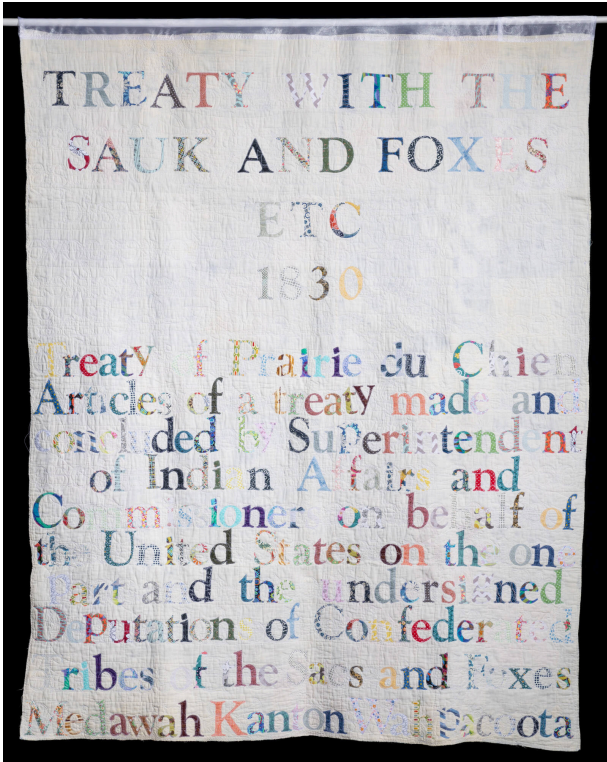 TREATY WITH THE
SAUK AND FOXES
ETC
1830
Treaty of Prairie du Chien
Articles of a treaty made and
concluded by Superintendent
of Indian Affairs and
Commissioner on behalf of
the United States on the one
Part and the undersigned
Deputations of Confederated
Tribes of the Sacs and Foxes
Medawah Kanton Wahpacoota